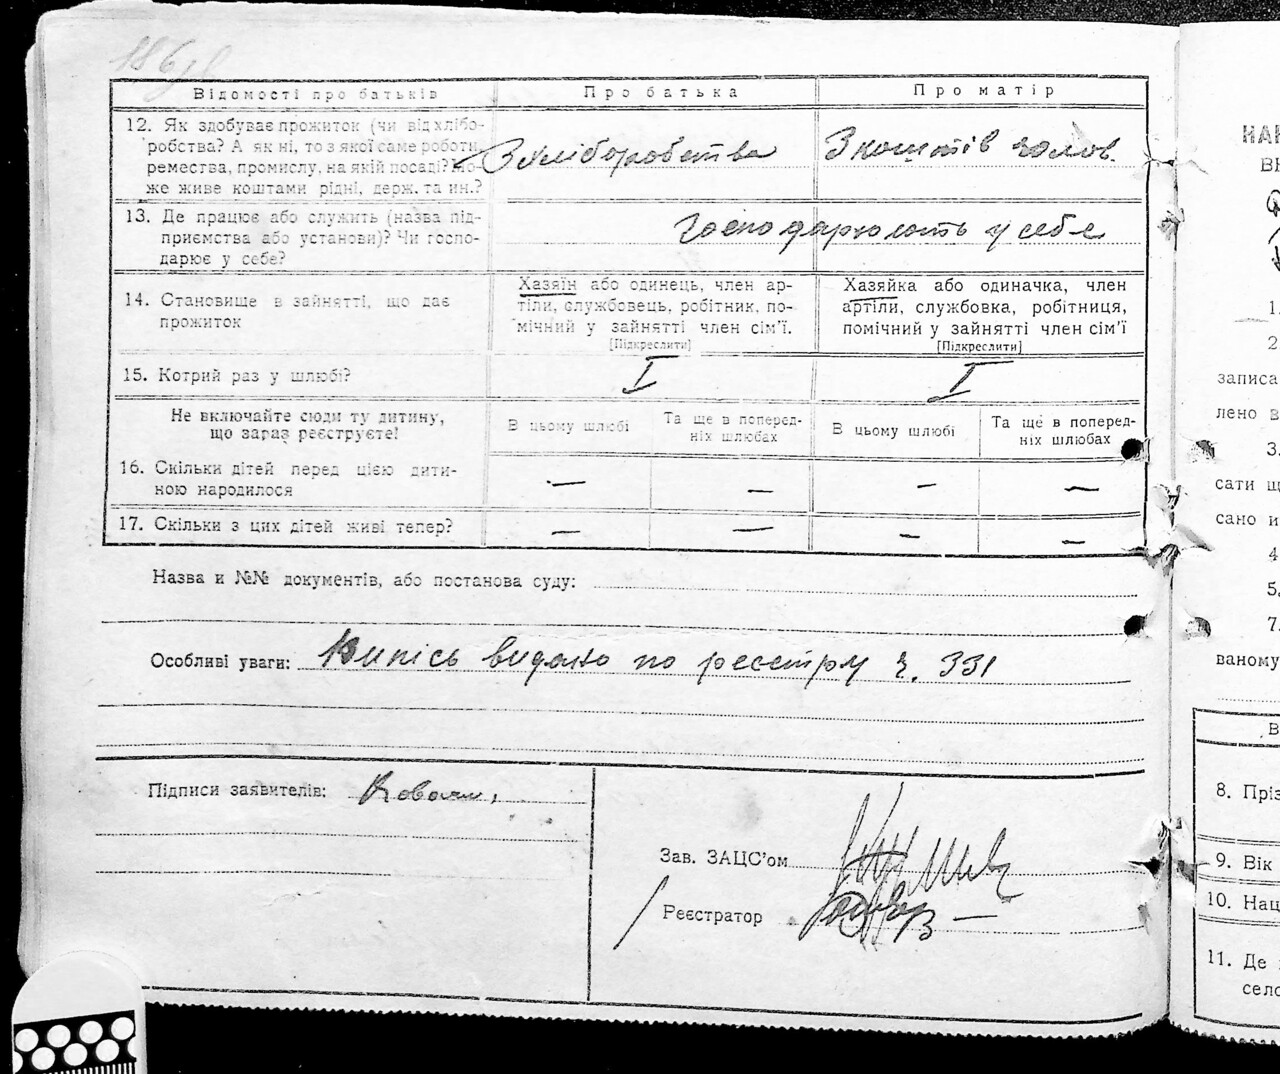 186
Відомості про батьків
Про батька
Про матір
12. Як здобуває прожиток (чи від хлібо-
робства? А як ні, то з якої саме роботи,
ремества, промислу, на якій посаді? Мо-
же живе коштами рідні, держ. та ин.?
З хліборобства
З коштів голов.
13. Де працює або служить (назва під-
приємства або установи)? Чи госпо-
дарює у себе?
Господарюють у себе
14. Становище в зайнятті, що дає
прожиток
Хазяїн або одинець, член ар-
тіли, службовець, робітник, по-
мічний у зайнятті член сім'ї.
[Підкреслити]
Хазяйка або одиначка, член
артіли, службовка, робітниця,
помічний у зайнятті член сім'ї
[Підкреслити]
15. Котрий раз у шлюбі?
I
I
Не включайте сюди ту дитину,
що зараз реєструєте!
В цьому шлюбі
Та ще в поперед-
ніх шлюбах
В цьому шлюбі
Та ще в поперед-
ніх шлюбах
16. Скільки дітей перед цією дити-
ною народилося
— — — —
17. Скільки з цих дітей живі тепер?
— — — —
Назва и №№ документів, або постанова суду:
Особливі уваги: Випісь видано по реєстру ч. 331
Підписи заявителів:
Зав. ЗАЦС'ом
Реєстратор
НА
ВІ
1.
2
записа
лено в
3.
сати щ
сано и
4
5.
7.
ваному
В
8. Пріз
9. Вік
10. Нац
11. Де
село